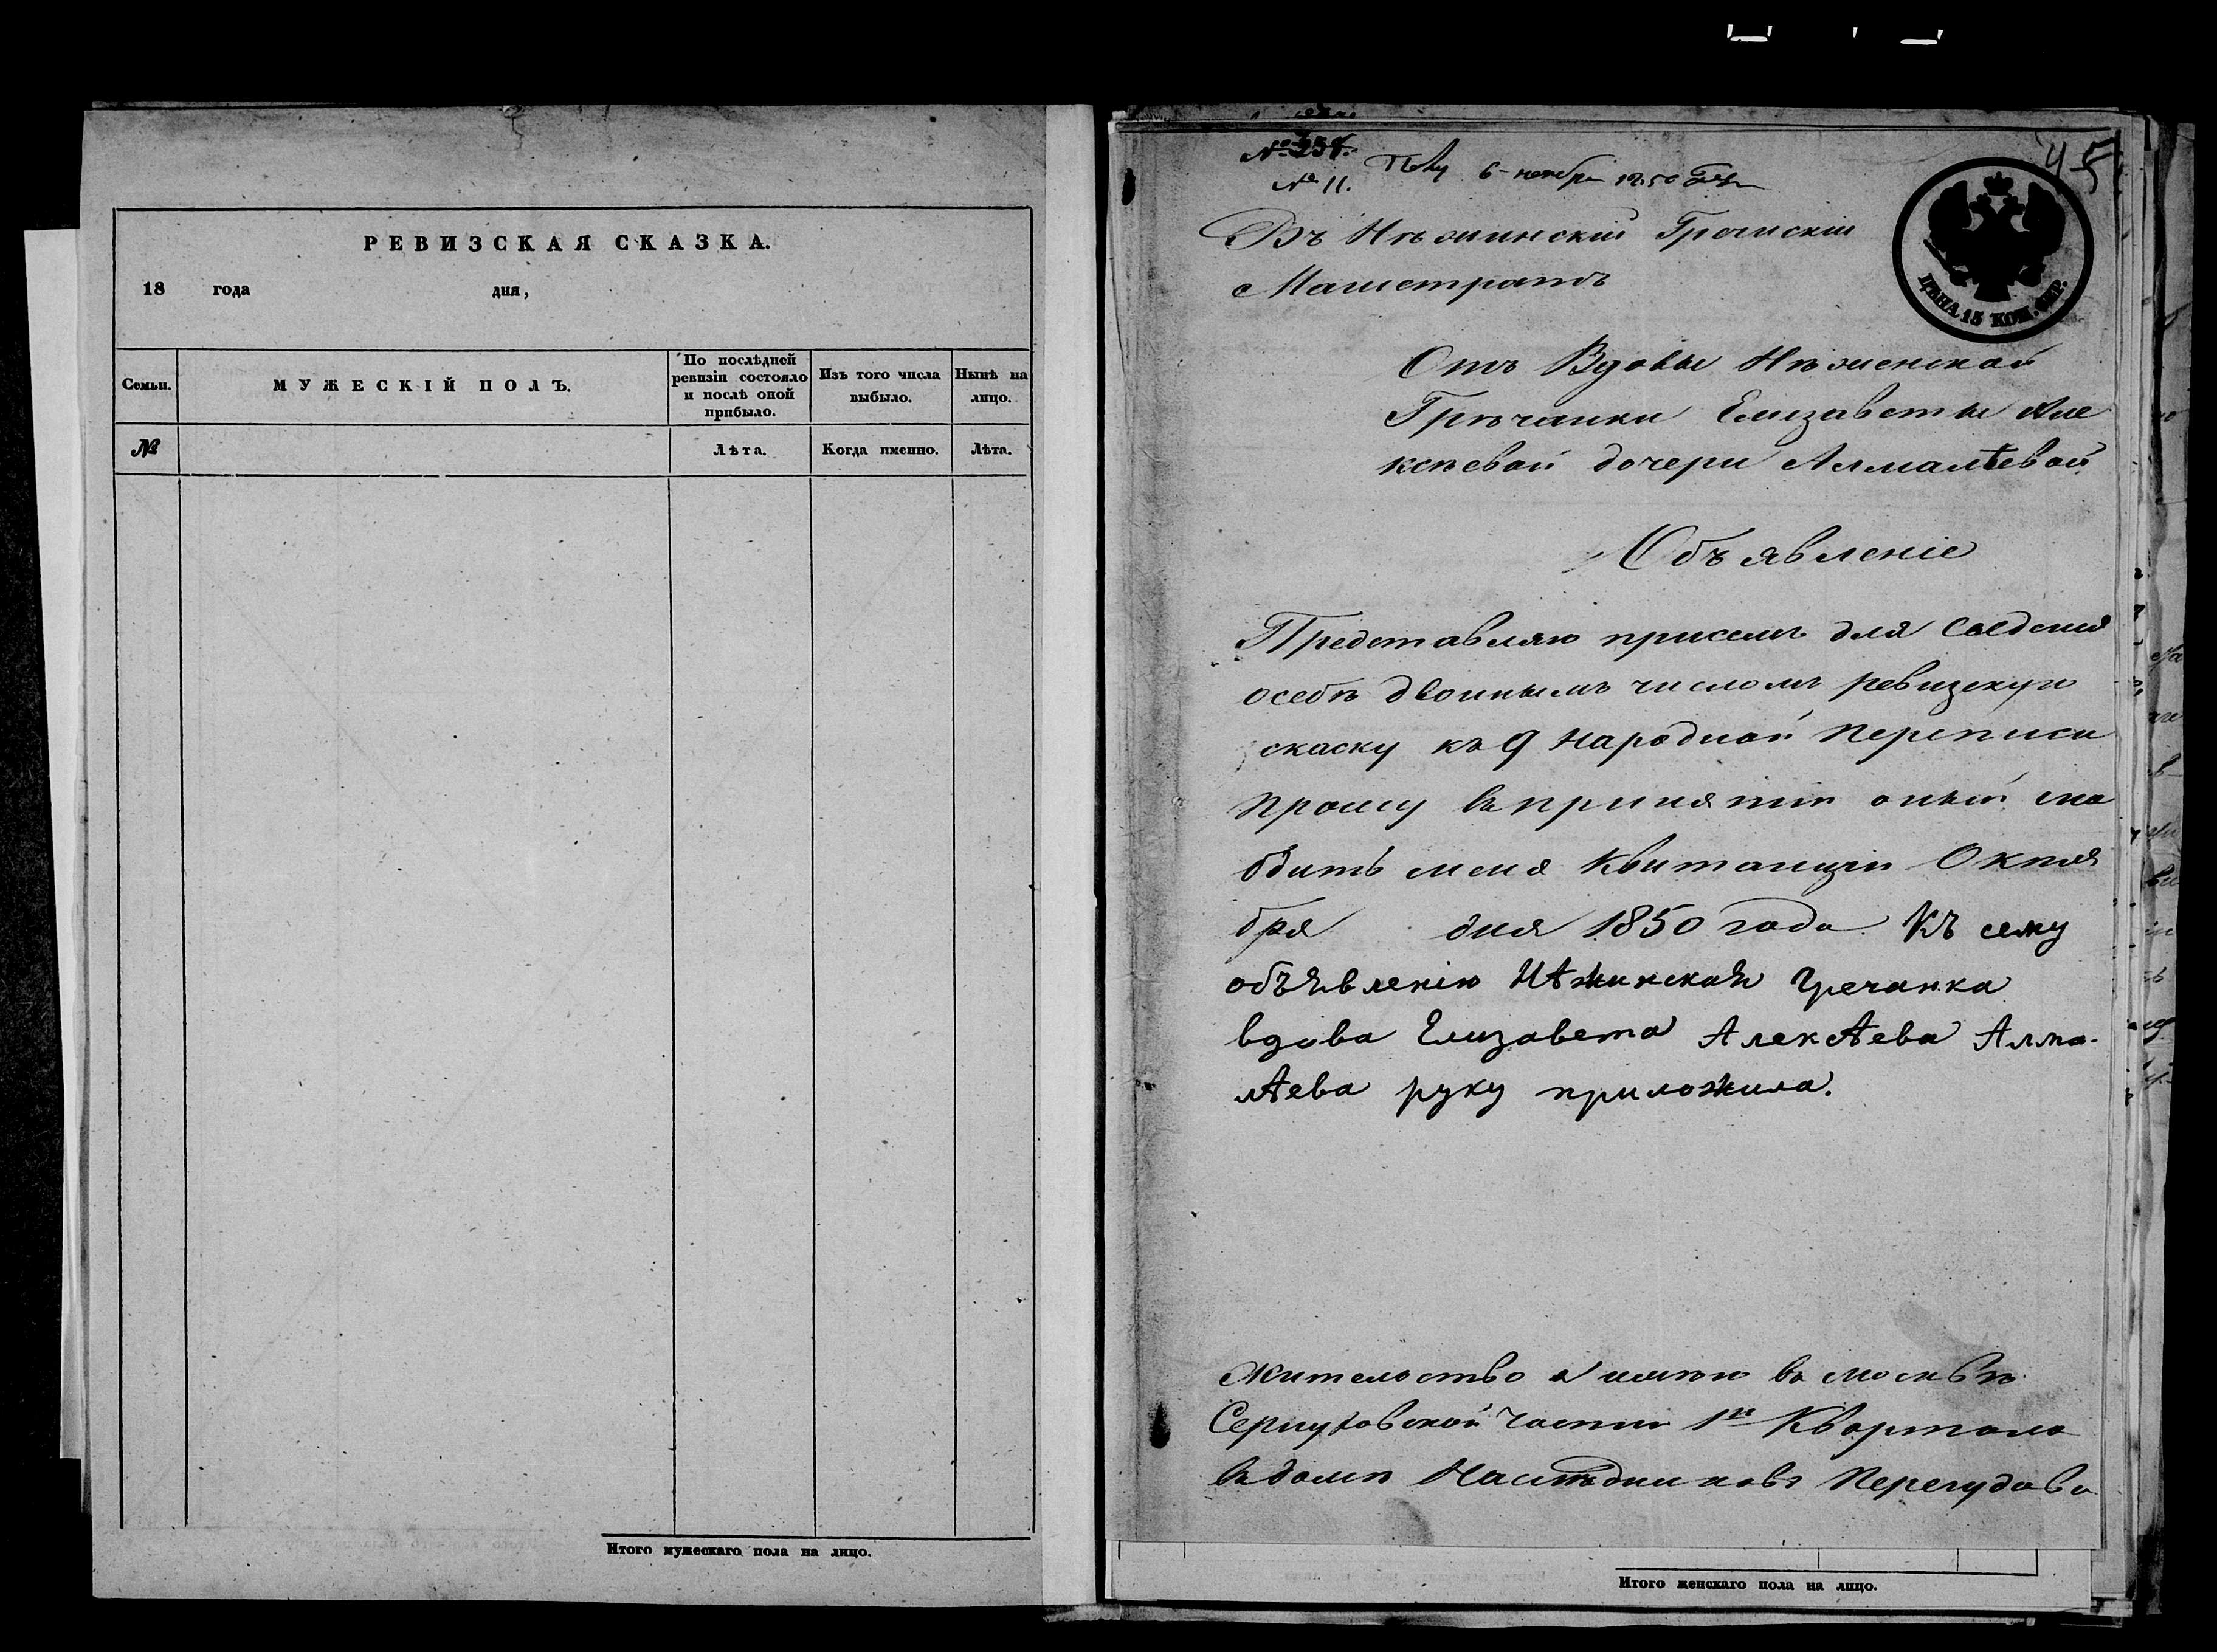 РЕВИЗСКАЯ СКАЗКА.
18 года дня,
Семьи.
МУЖЕСКІЙ ПОЛЪ.
По послѣдней
ревизіи состояло
и послѣ оной
прибыло.
Изъ того числа
выбыло.
Нынѣ на
лицо.
№
Лѣта.
Когда именно.
Лѣта.
Итого мужескаго пола на лицо.
45
№ 257.
№ 11.
Полу 6 ноября 1850
ЦѢНА 15 КОП. СЕР.
Въ Нѣжинскій Греческій
Магистратъ
Отъ Вдовы Нѣженской
Грѣчанки Елизаветы Але
ксѣевой дочери Алмалѣевой
Объявленіе
Представляю присемъ для Сведения
осебѣ двоинымъ числомъ ревизскую
скаску къ 9 Народной Переписи
Прошу впринятіи оной сна
бдить меня Квитанціи Октя
бря дня 1850 года. Къ сему
объявленію Нѣжинская Гречанка
вдова Елизавета АлекѢева Алма-
лѣева руку приложила.
Жительство имѣю в Москвѣ
Серпуховской Части 1го Квартала
в домѣ Наслѣдниковъ Перегудова
Итого женскаго пола на лицо.